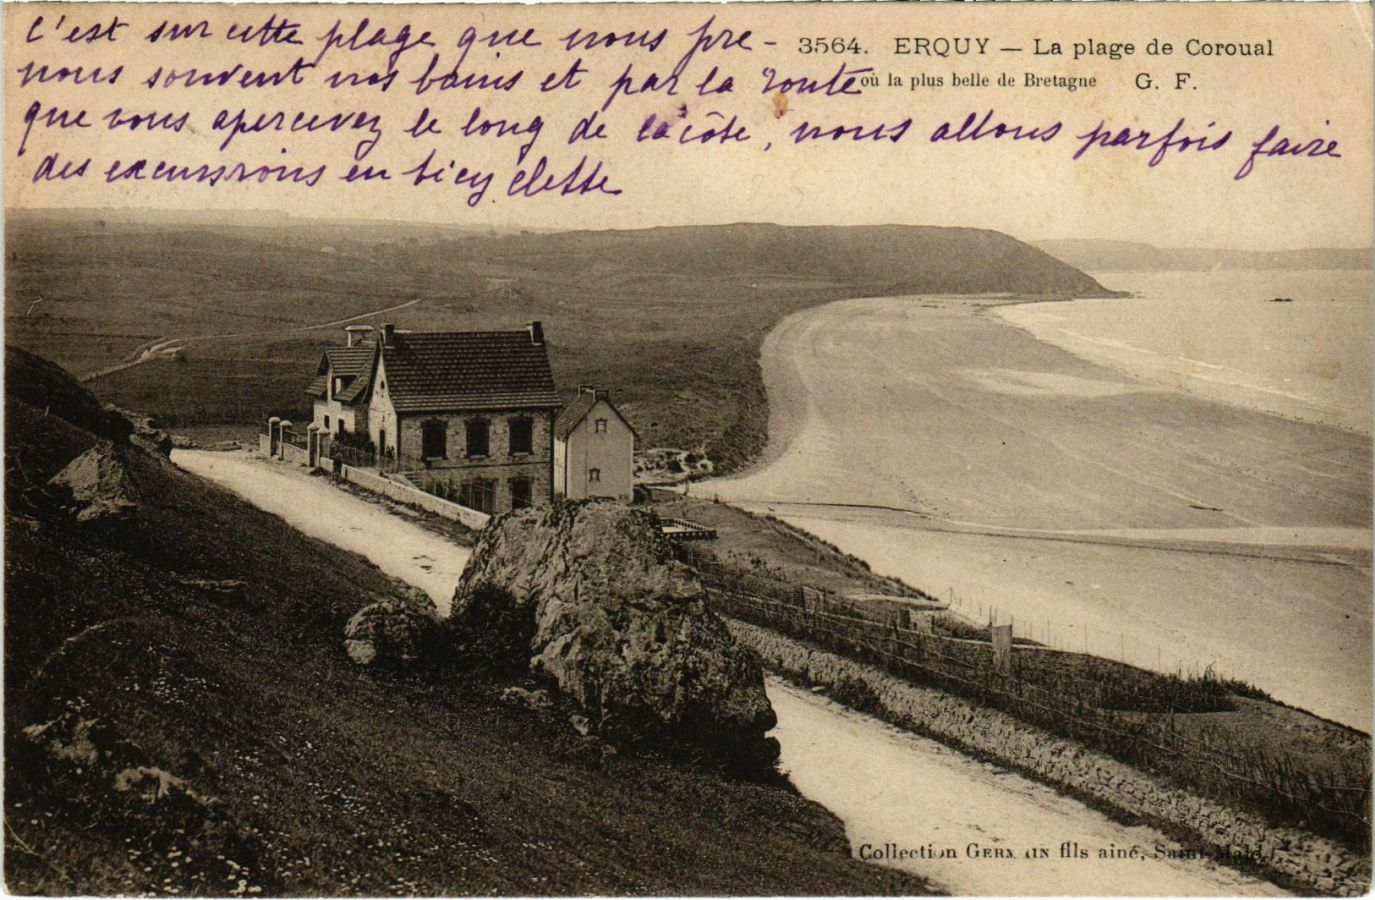 c'est sur cette plage que nous pre-
nous souvent nos bains et par la route
que vous apercevez le long de la côte, nous allons parfois faire
des excursions en bicyclette
3564. ERQUY — La plage de Coroual
où la plus belle de Bretagne G. F.
Collection GERMAIN fils ainé, Saint-Malo